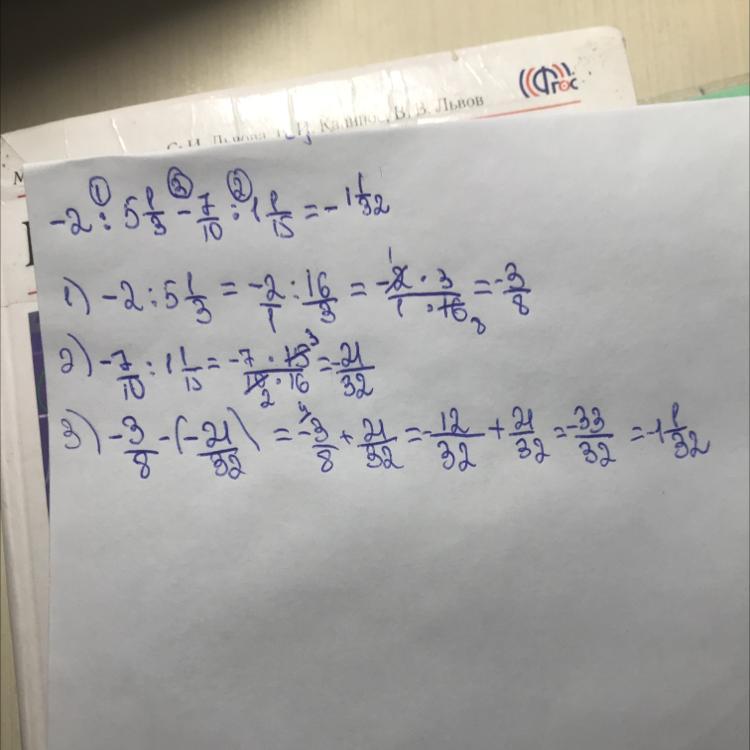 ФГОС
В. В. Львов
① ③ ②
-2 : 5 1/3 - 7/10 : 1 1/15 = -1 1/32
1) -2 : 5 1/3 = -2/1 : 16/3 = -2 · 3 / 1 · 16 = -3/8
2) -7/10 : 1 1/15 = -7 · 15 / 10 · 16 = -21/32
3) -3/8 - (-21/32) = -3/8 + 21/32 = -12/32 + 21/32 = -33/32 = -1 1/32